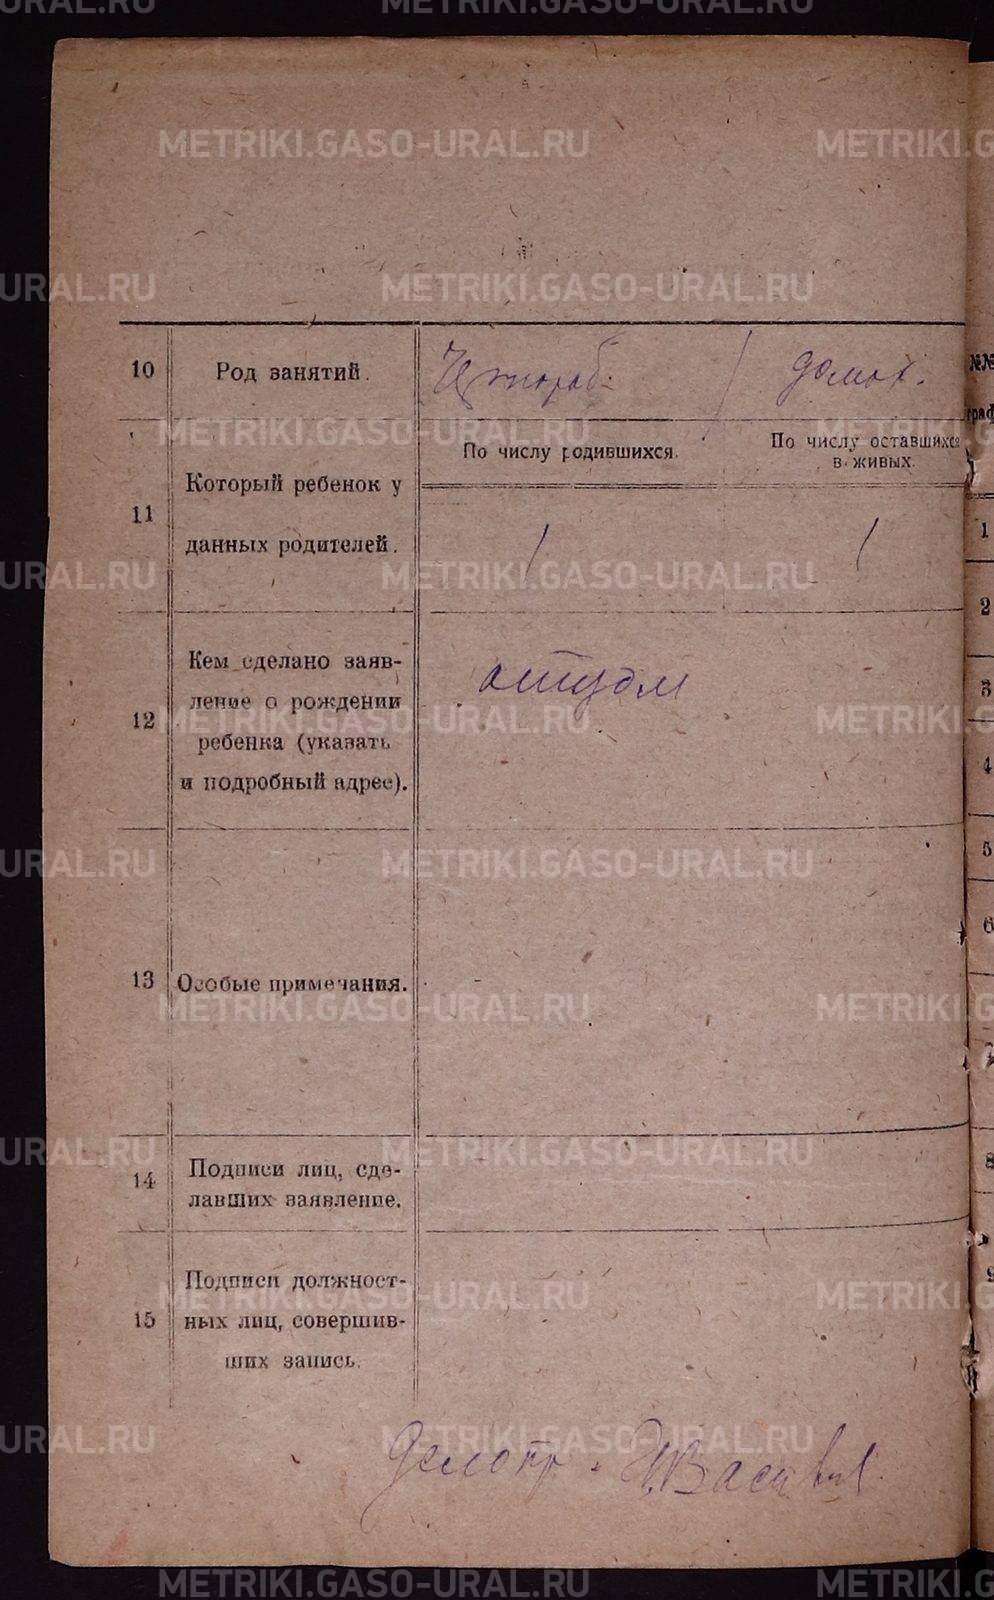 METRIKI.GASO-URAL.RU
10 Род занятий. домох.
11 Который ребенок у
данных родителей.
По числу родившихся.
По числу оставшихся
в живых.
1 1
12 Кем сделано заяв-
ление о рождении
ребенка (указать
и подробный адрес).
отцом
13 Особые примечания.
14 Подписи лиц, сде-
лавших заявление.
15 Подписи должност-
ных лиц, совершив-
ших запись.
Делопр.
№№
граф
1
2
3
4
5
6
8
9